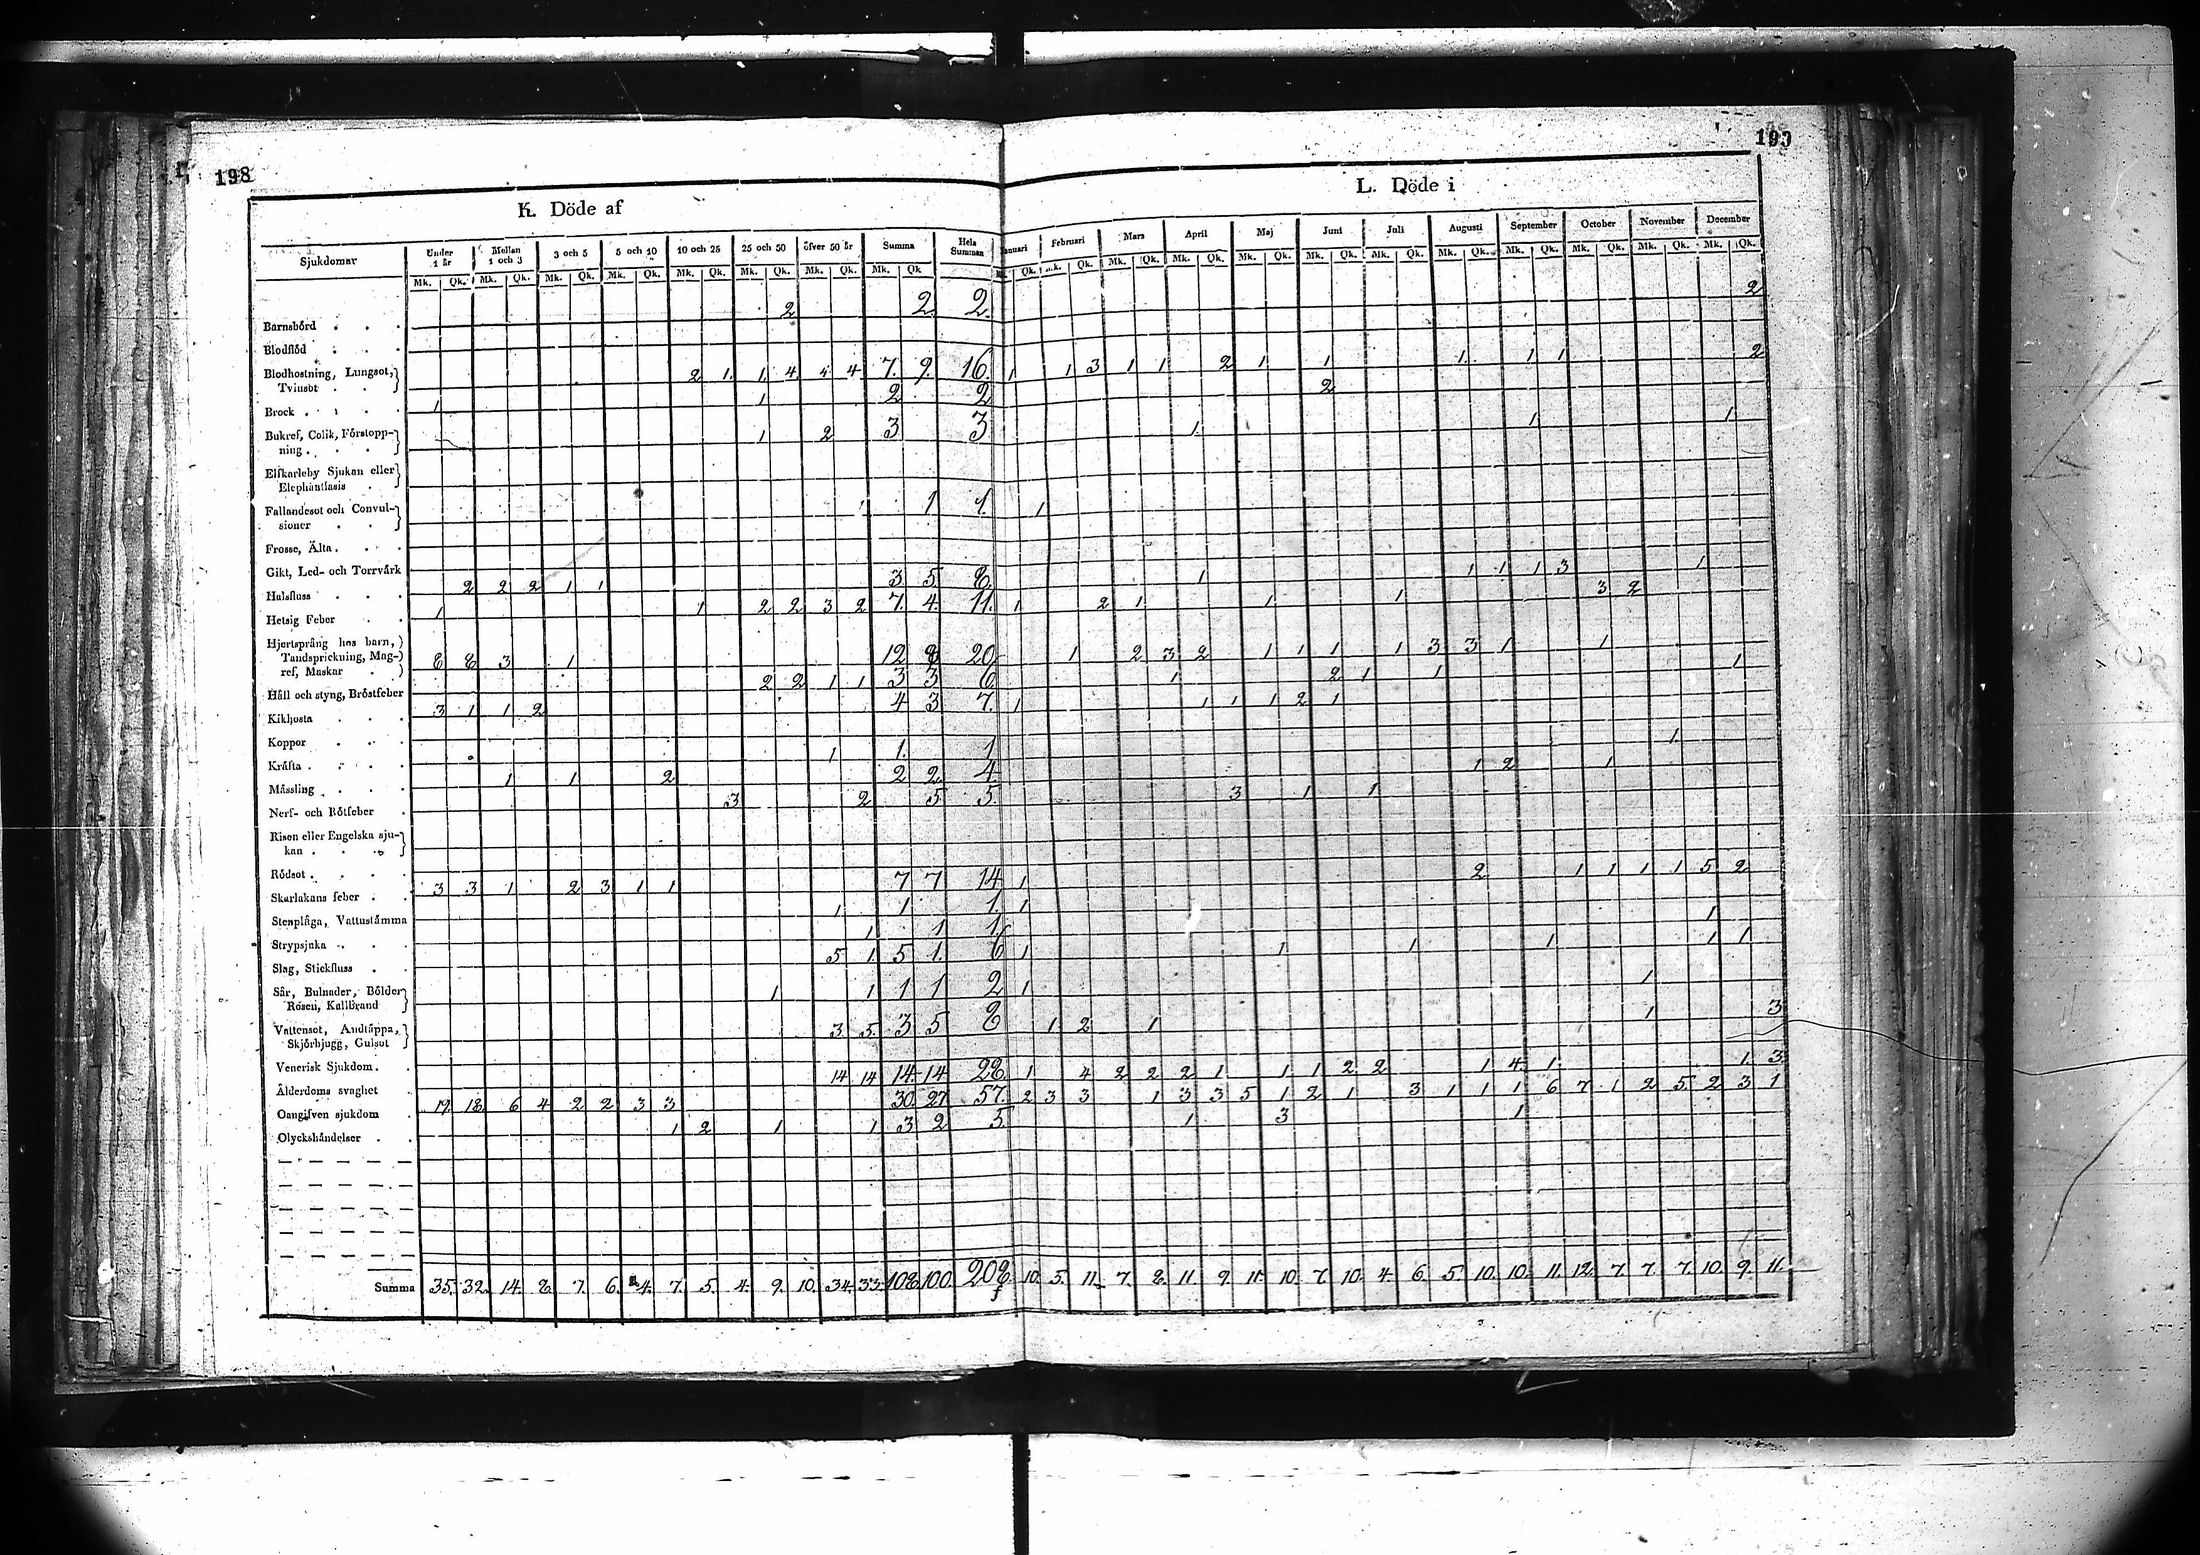 198
199
K. Döde af
L. Döde i
Sjukdomar Under 1 år Mellan 1 och 3 3 och 5 5 och 10 10 och 25 25 och 50 öfver 50 år Summa Hela Summan Januari Februari Mars April Maj Juni Juli Augusti September October November December
Mk. Qk. Mk. Qk. Mk. Qk. Mk. Qk. Mk. Qk. Mk. Qk. Mk. Qk. Mk. Qk Qk. Mk. Qk. Mk. Qk. Mk. Qk. Mk. Qk. Mk. Qk. Mk. Qk. Mk. Qk. Mk. Qk. Mk. Qk. Mk. Qk. Mk. Qk.
Barnsbörd . . . 2 2 2. 2
Blodflöd . . .
Blodhostning, Lungsot,
Tvinsot . . 2 1. 1. 4. 4. 4. 7. 9. 16. 1 1 3 1 1 2 1 1 1. 1 1 2
Brock . . . . 1 1 2 2 2
Bukref, Colik, Förstopp-
ning . . . 1 2 3 3 1. 1 1
Elfkarleby Sjukan eller
Elephantiasis .
Fallandesot och Convul-
sioner . . 1 1 1. 1
Frosse, Älta . . .
Gikt, Led- och Torrvärk
Halsfluss . . . 2 2 2 1 1 3 5. 8. 1 1 1 1 3 1
Hetsig Feber . . 1 1 2 2 3 2 7. 4. 11. 1 2 1 1 1 3 2
Hjertsprång hos barn,
Tandsprickning, Mag-
ref, Maskar . 8 8 3 1 12 8 20 1 2 3 2 1 1 1 1 3 3 1 1
Håll och styng, Bröstfeber 2 2 1 1 3 3 6 1 2 1 1 1
Kikhosta . . . 3 1 1 2 4 3 7. 1 1 1 1 2 1
Koppor . . .
Kräfta . . . . 1 1. 1 1.
Mässling . . . 1 1 2 2 2 4. 1 2 1
Nerf- och Rötfeber . 3 2 5 5. 3 1 1
Risen eller Engelska sju-
kan . . .
Rödsot . . . .
Skarlakans feber . . 3 3 1 2 3 1 1 7 7 14 1 2 1 1 1 1 5 2
Stenplåga, Vattustämma 1 1 1. 1
Strypsjuka . . . 1 1 1. 1
Slag, Stickfluss . . 5 1. 5 1. 6 1 1 1 1 1 1
Sår, Bulnader, Bölder
Rosen, Kallbrand 1 1 1 1 2 1 1
Vattensot, Andtäppa,
Skjörbjugg, Gulsot 3 5. 3 5 8 1 2 1 1 3
Venerisk Sjukdom . .
Ålderdoms svaghet . 14 14 14. 14 28. 1 4 2 2 2 1 1 1 2 2 1 4. 1. 1. 3.
Oangifven sjukdom . 19. 18. 6 4 2 2 3 3 30. 27 57. 2 3 3 1 3 3 5 1 2 1 3 1 1 1 6 7 1 2 5. 2 3 1
Olyckshändelser . . 1 2 1 1 3 2 5 1 3 1
Summa 35. 32. 14. 8. 7. 6. 4. 7. 5. 4. 9. 10. 34. 33. 108. 100. 208. 10. 5. 11. 7. 8. 11. 9. 11. 10. 7. 10. 4. 6. 5. 10. 10. 11. 12. 7. 7. 7. 10. 9. 11.